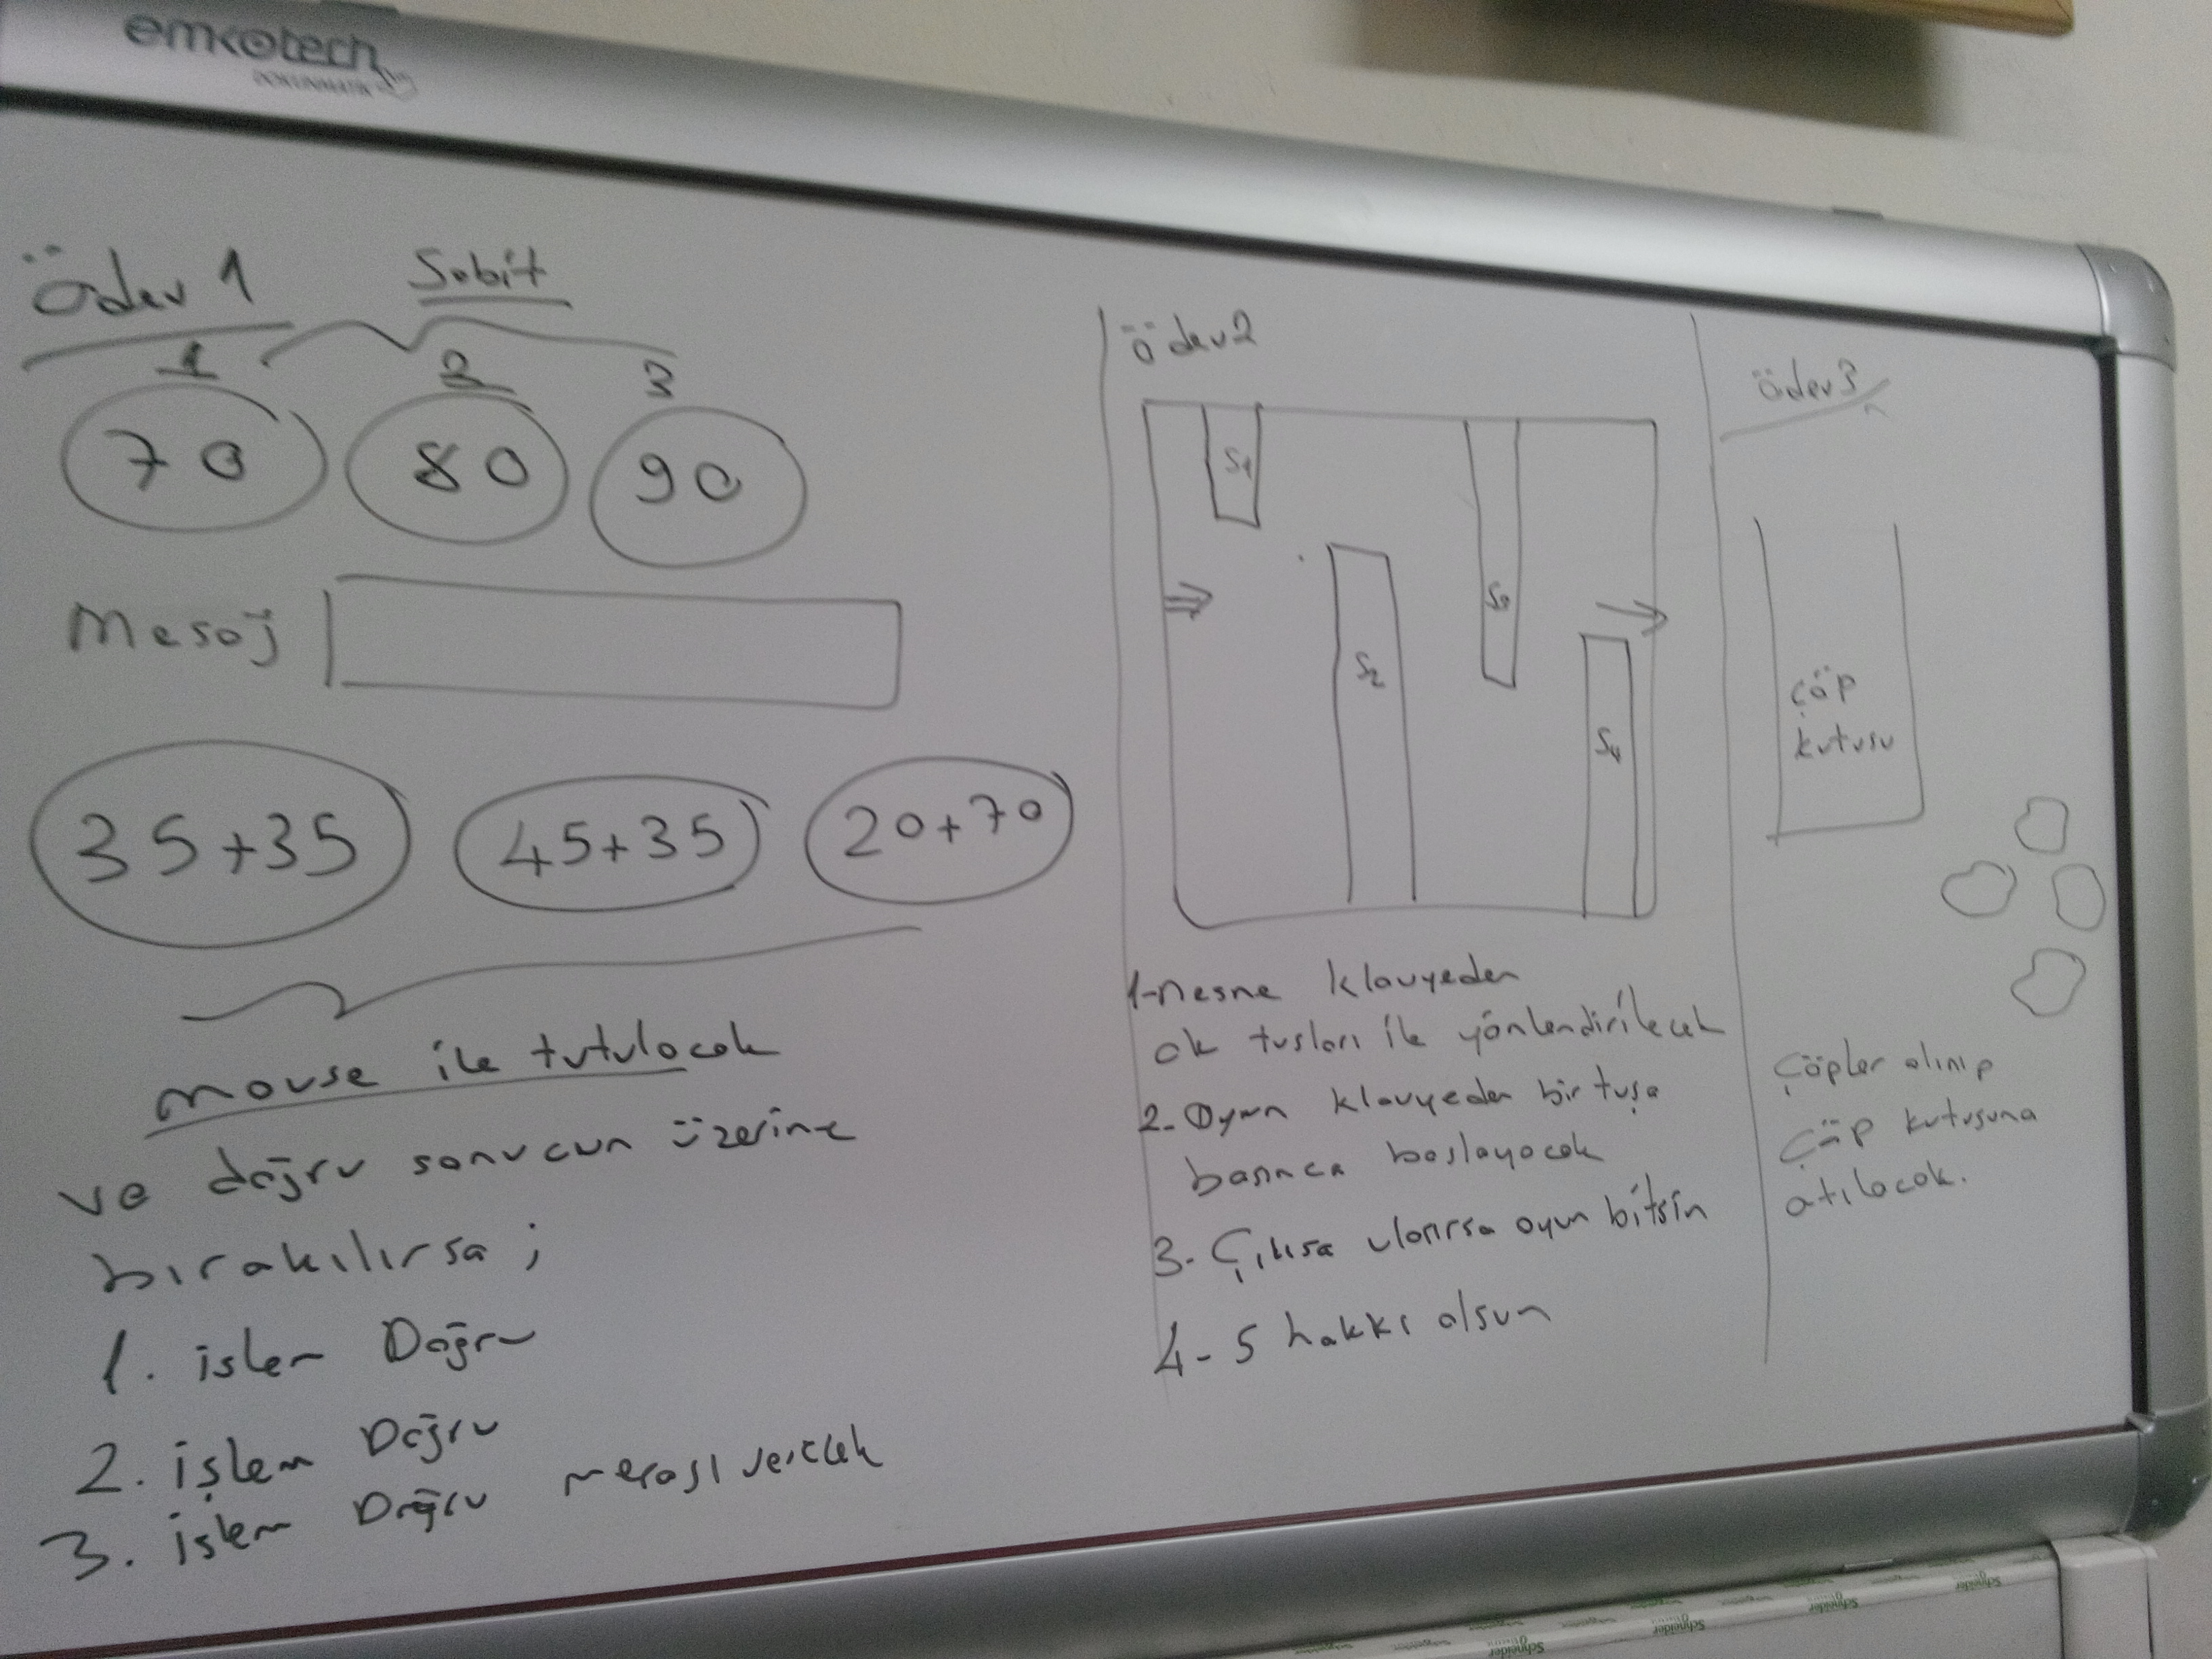 emkotech
DOKUNMATİK
Ödev 1
Sabit
1 2 3
70 80 90
Mesaj
35+35 45+35 20+70
mouse ile tutulacak
ve doğru sonucun üzerine
bırakılırsa ;
1. işlem Doğru
2. işlem Doğru
3. işlem Doğru mesajı verecek
ödev 2
S1
S2
S3
S4
1-nesne klavyeden
ok tusları ile yönlendirilecek
2. Oyun klavyeden bir tuşa
basınca baslayacak
3- Çıkısa ulasırsa oyun bitsin
4- 5 hakkı olsun
ödev 3
çöp
kutusu
çöpler alınıp
çöp kutusuna
atılacak.
Schneider
Schneider
Schneider
Schneider